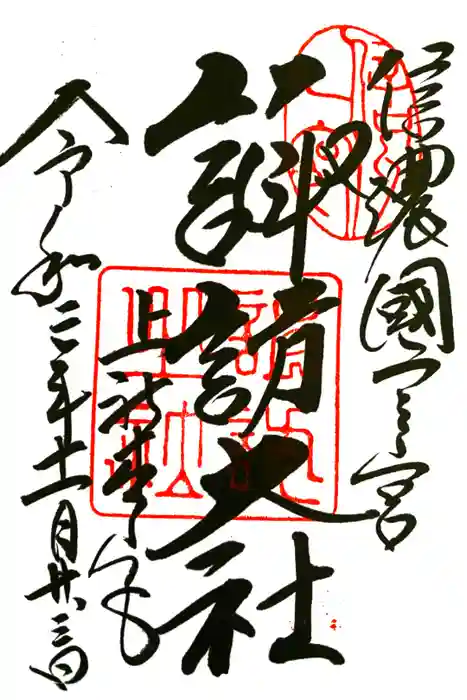 信濃國一之宮
諏訪大社
上社本宮
令和二年十一月廿三日